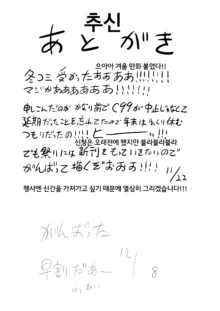 추신
あとがき
으아아 겨울 만화 붙었다!!
冬コミ受かったぁぁぁぁ!!!!!!!
マジかぁぁぁぁぁぁ!!!!
申しこんだのが かなり前で C99が中止じゃなくて
延期だったことを忘れてたので年末はゆっくり休む
つもりだったの!!!! ヒー!!!
신청은 오래전에 했지만 블라블라블라
でも祭りには新刊をもっていきたいので
がんばって描くぞぉぉぉ!!!!
11/22
행사엔 신간을 가져가고 싶기 때문에 열심히 그리겠습니다!!!
がんばった
早割だぁ〜 12/8